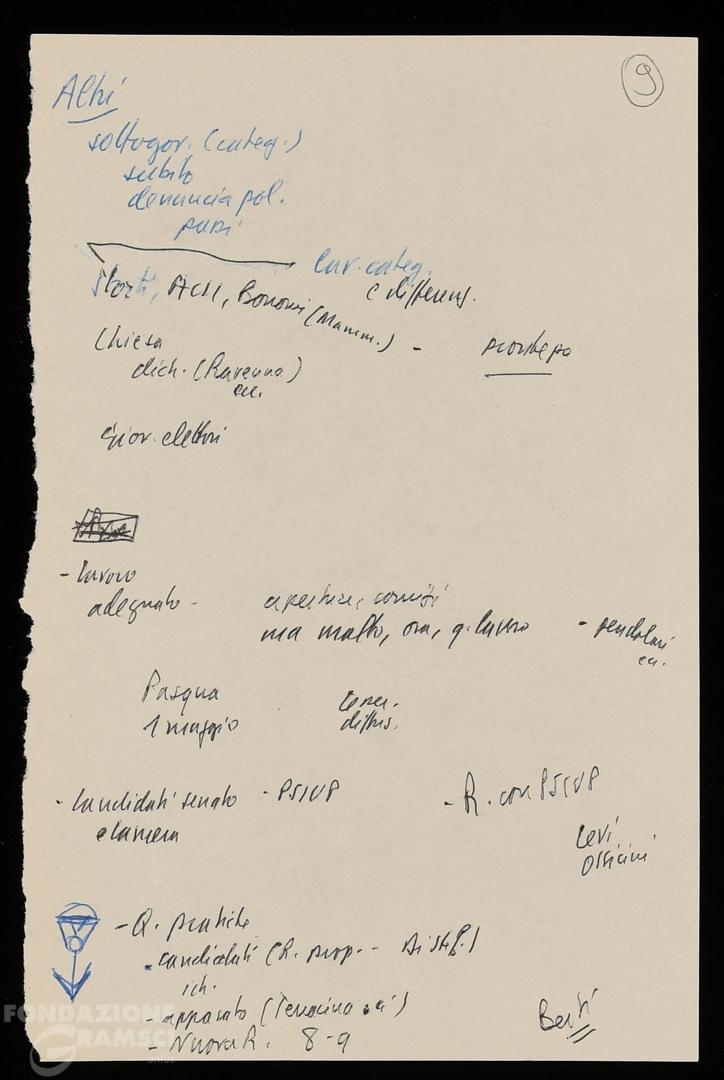 9
Altri
sottogov. (categ.)
subito
denuncia pol.
passi
lav. categ.
e differenz.
Storti, ACLI, Bonomi (Mamm.) -
Chiesa
dich. (Ravenna)
ecc.
giov. elettori
- lavoro
adegnato -
aperture, comizi
ma molto, ora, q. lavoro
- pendolari
ecc.
Pasqua
1 maggio
diffus.
- Candidati senato
e camera
- PSIUP
- R. con PSIUP
Levi
Ossicini
- Q. pratiche
- candidati (R. prop. -
- apparato (Terracina
- Nuova R. 8-9
Berti
FONDAZIONE
GRAMSCI
ONLUS